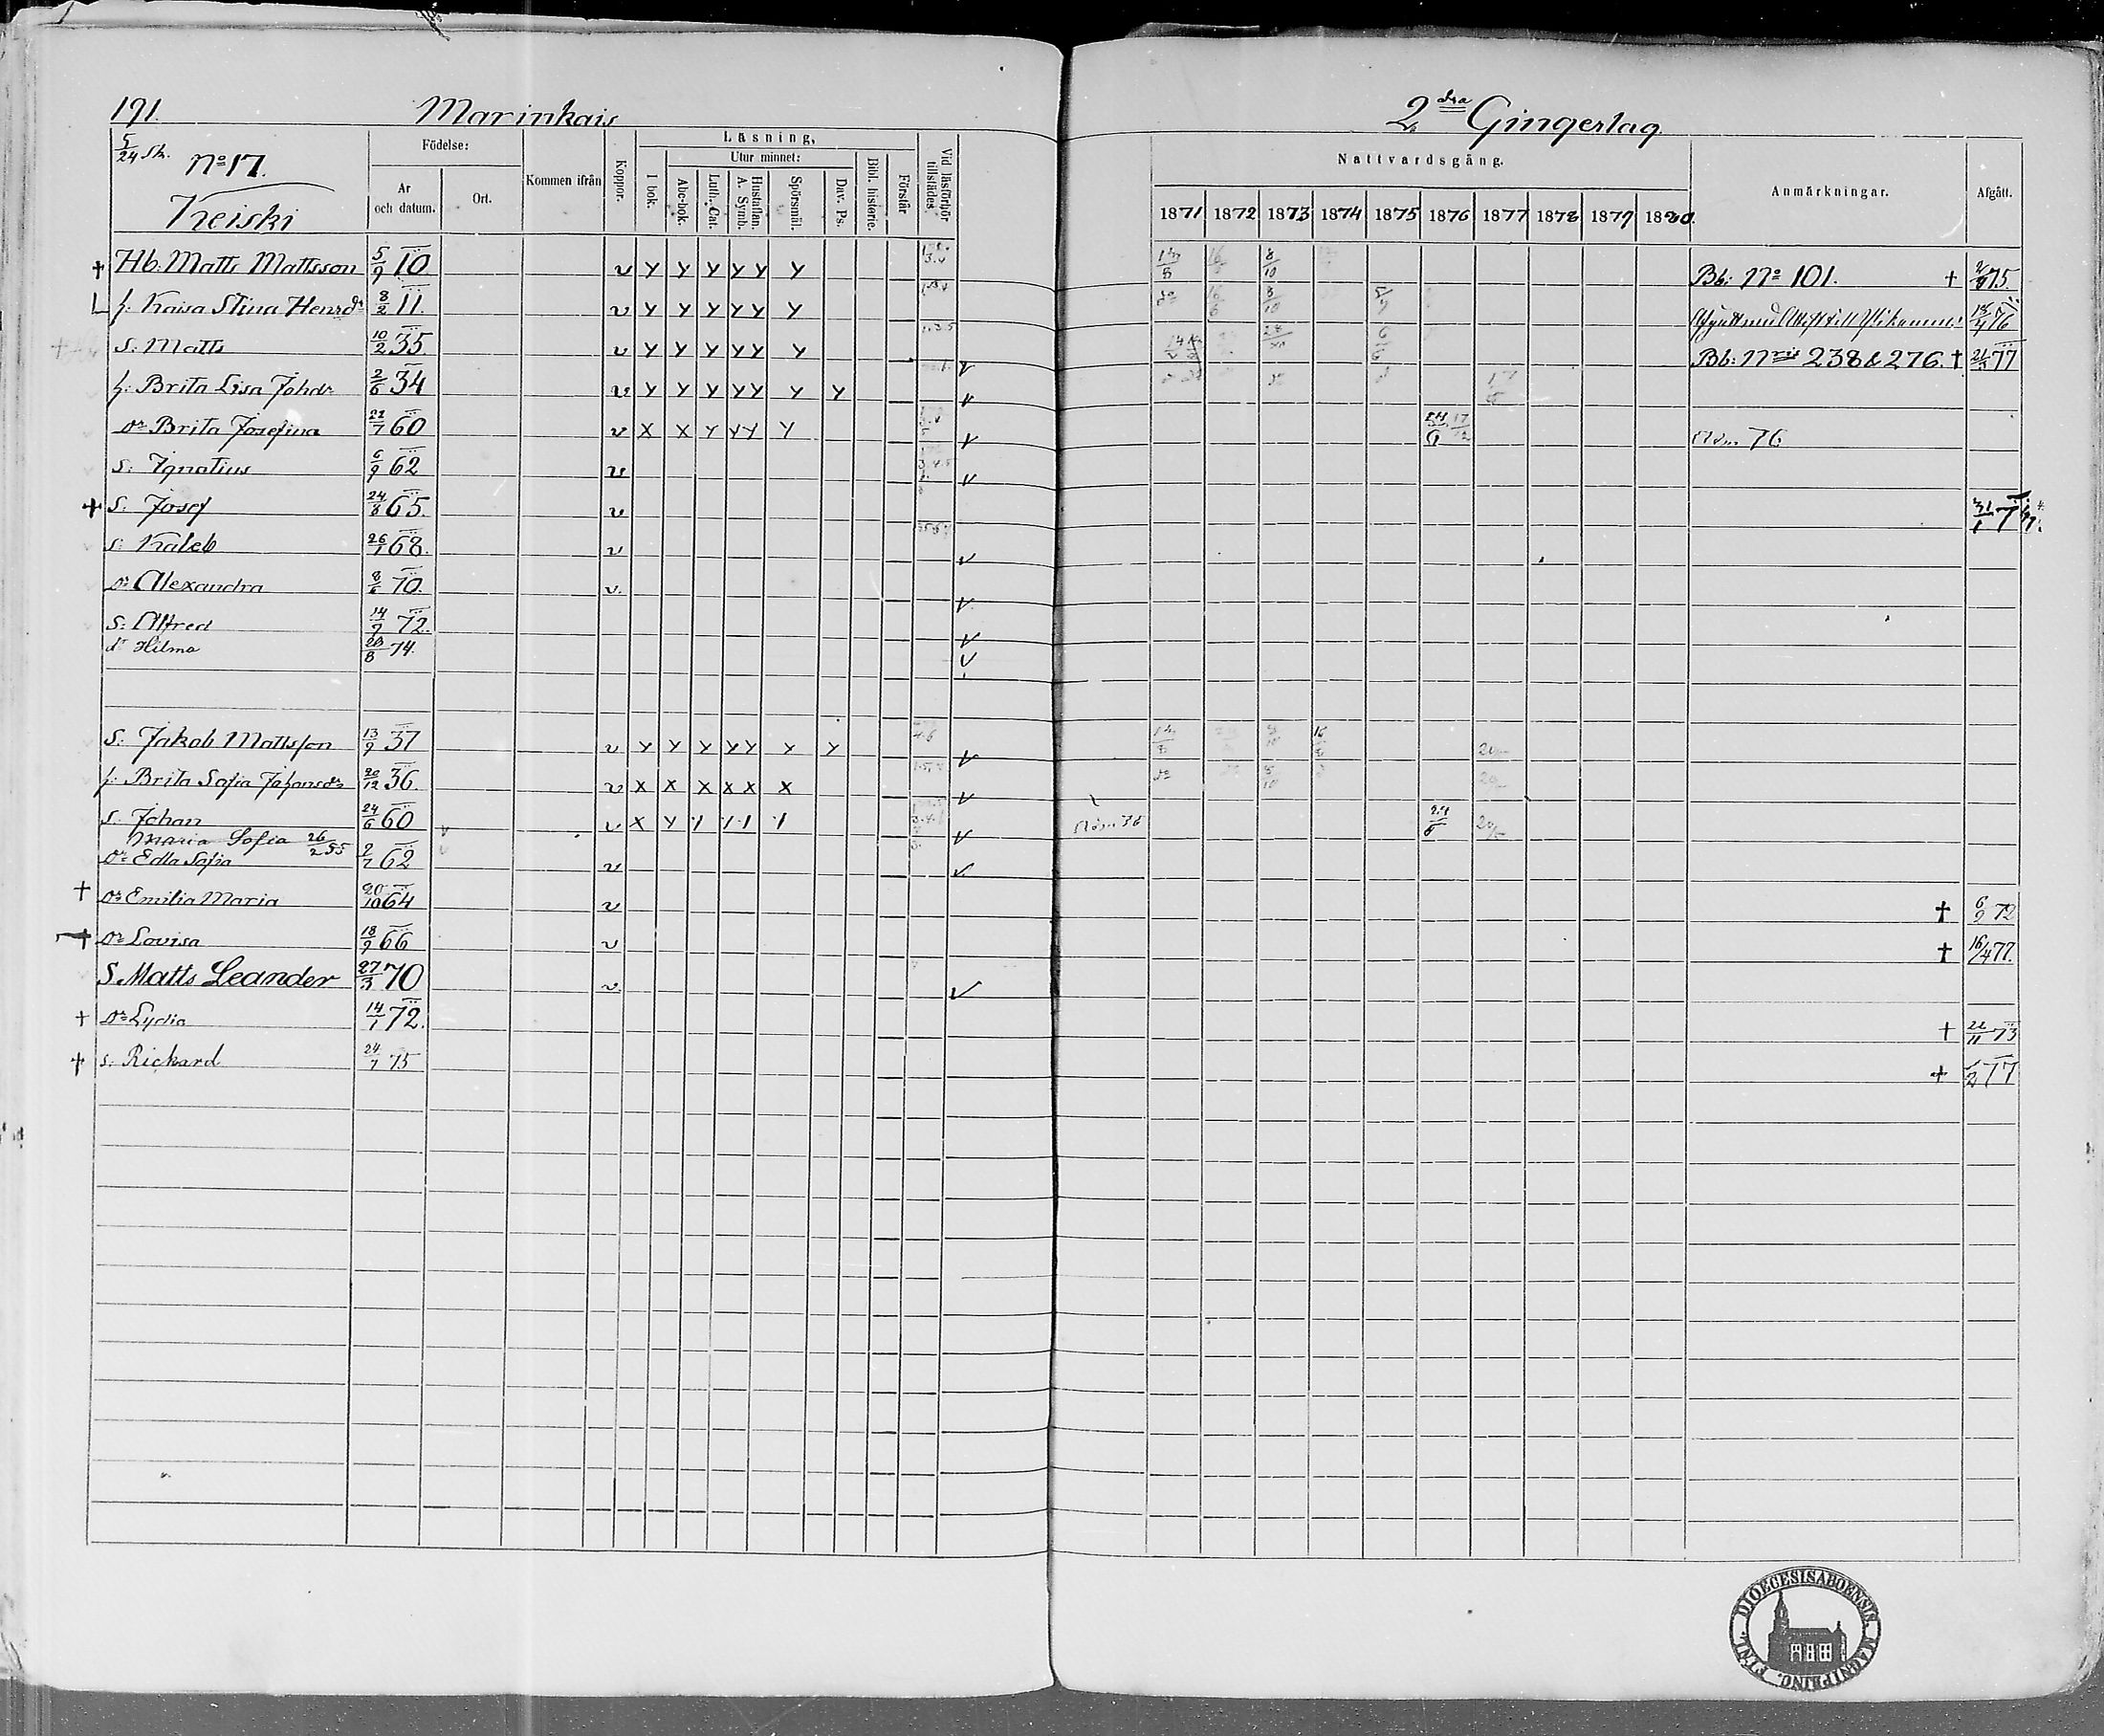 191. Marinkais 2dra Gingerlag
5/24 Sk. No 17.
Keiski
Födelse: År och datum. Ort. Kommen ifrån Koppor. Läsning, I bok. Utur minnet: Abc-bok. Luth. Cat. Hustaflan. A. Symb. Spörsmål. Dav. Ps. Bibl. historie. Förstår Vid läsförhör tillstädes
Nattvardsgång. 1871 1872 1873 1874 1875 1876 1877 1878 1879 1880. Anmärkningar. Afgått.
† Hb: Matts Mattsson 5/9 10 v y y y y y y 8/10 Bb: No 101. † 75.
h: Kaisa Stina Henrdr 8/2 11. v y y y y y y 8/10
s: Matts 10/2 35. v y y y y y y v Bb: Nris 238 & 276. † 77
h: Brita Lisa Johdr 2/6 34 v y y y y y y y v
dr Brita Josefina 60 v x x y y y y v 76
s: Ignatius 6/9 62 v v
† s: Josef 24/8 65. v
s: Kaleb 26/1 68. v v
dr Alexandra 8/6 70. v. v
s: Alfred 14/9 72. v
dr Hilma 74. v
s: Jakob Mattsson 13/9 37 v y y y y y y y v
h: Brita Sofia Johansdr 20/12 36. v x x x x x x v 8/10
s: Johan 24/6 60 v x y v
Maria Sofia 26/2 55
dr Edla Sofia 2/7 62 v v
† dr Emilia Maria 20/10 64 v † 6/9 72
† dr Lovisa 18/9 66 v † 16/4 77.
S. Matts Leander 27/3 70 v. v
† dr Lydia 14/1 72. † 22/11 73
† s: Rickard 24/7 75 † 77
DIOECESIS ABOENSIS MAGNI PRINC. FINL.